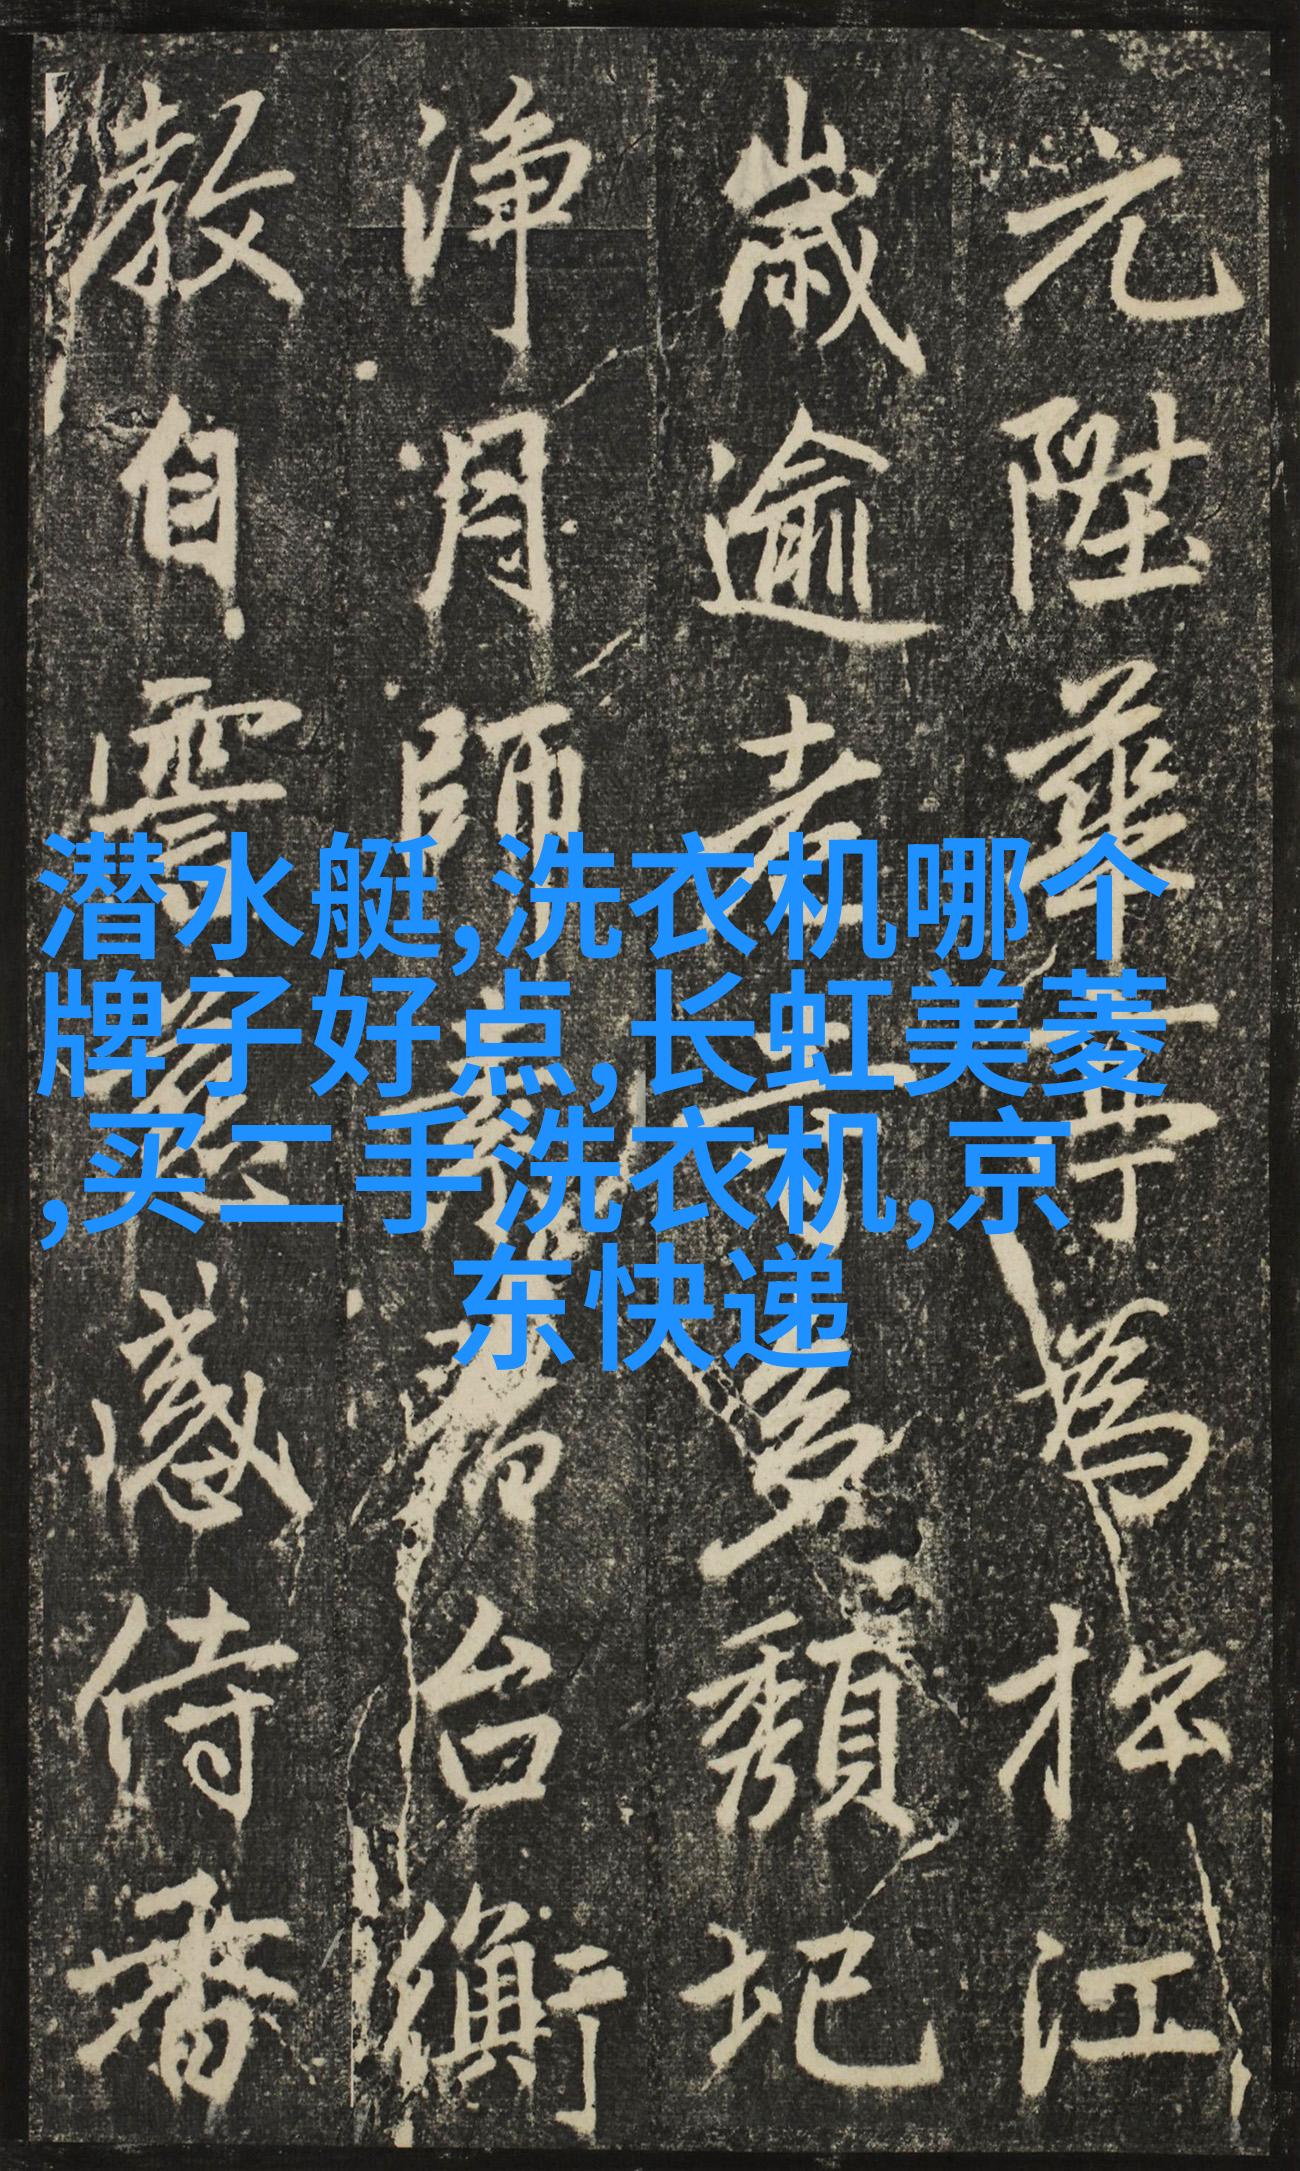 潜水艇,洗衣机哪个
牌子好点,长虹美菱
,买二手洗衣机,京
东快递
元陞華為扵江
歲逾老多頽圮
淨月師台衡
教自感侍番